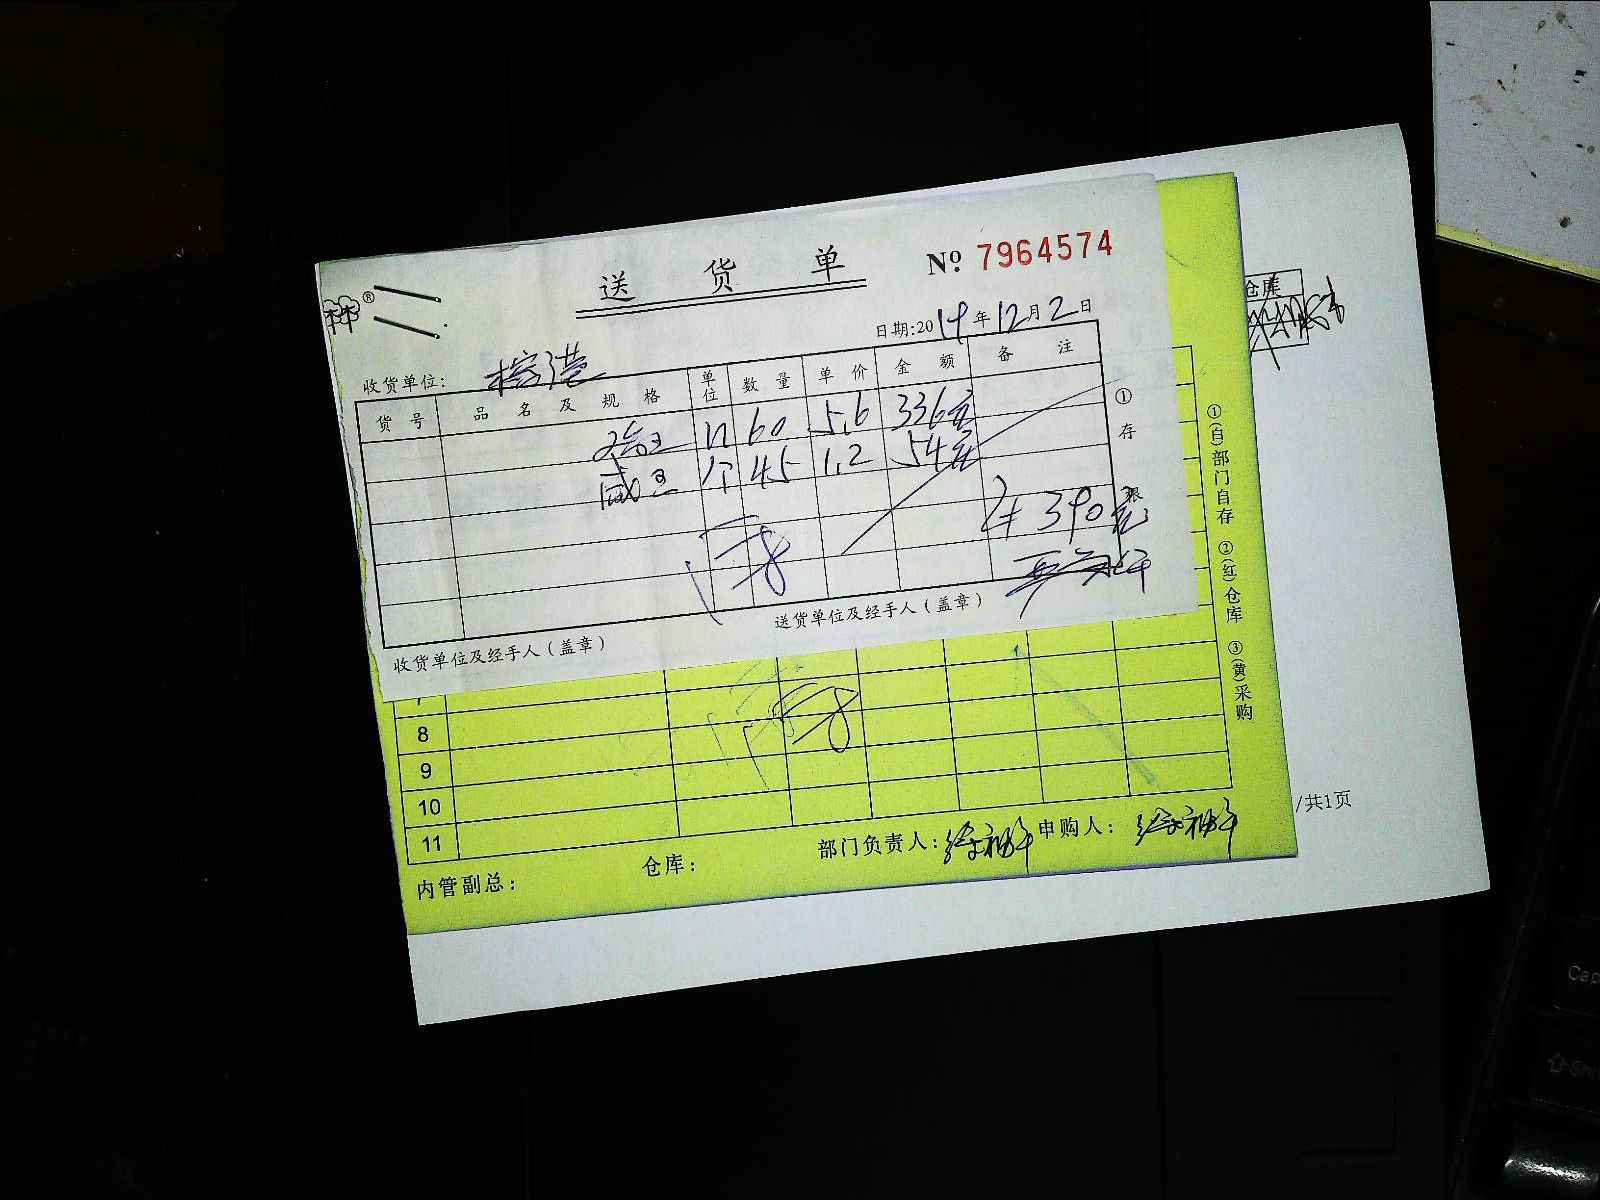 送 货 单 Nº 7964574
®
日期:2014年12月2日
收货单位: 榕港
货 号 品 名 及 规 格 单位 数 量 单 价 金 额 备 注
60 5.6 336元
咸 个 45 1.2 54元
390元
① 存 根
收货单位及经手人(盖章) 送货单位及经手人(盖章)
仓库
①(白)部门自存 ②(红)仓库 ③(黄)采购
7
8
9
10
11
内管副总: 仓库: 部门负责人: 申购人:
/共1页
Cap
Shi